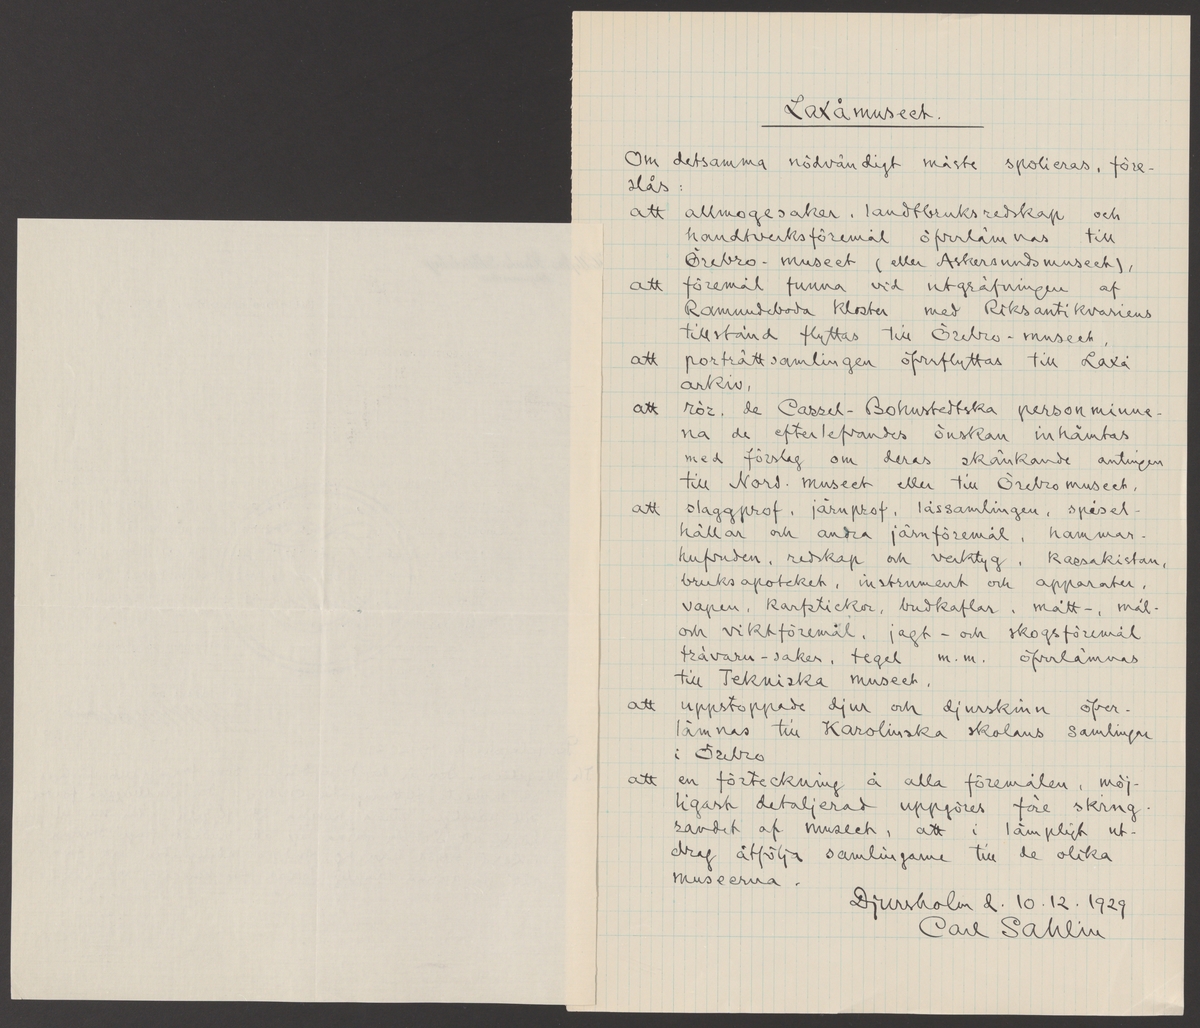 Laxåmuseet.
Om detsamma nödvändigt måste spolieras, före-
slås:
att allmogesaker, landtbruksredskap och
handtverksföremål öfverlämnas till
Örebro-museet (eller Askersundsmuseet),
att föremål funna vid utgräfningen af
Ramundeboda kloster med Riksantikvariens
tillstånd flyttas till Örebro-museet,
att porträttsamlingen öfverflyttas till Laxå
arkiv,
att rör. de Cassel-Bohnstedtska personminne-
na de efterlefvandes önskan inhämtas
med förslag om deras skänkande antingen
till Nord. museet eller till Örebromuseet,
att slaggprof, järnprof, låssamlingen, spisel-
hällar och andra järnföremål, hammar-
hufvuden, redskap och verktyg, kassakistan,
bruksapoteket, instrument och apparater,
vapen, karfstickor, budkaflar, mått-, mål-
och viktföremål, jagt- och skogsföremål
trävaru-saker, tegel m.m. öfverlämnas
till Tekniska museet,
att uppstoppade djur och djurskinn öfver-
lämnas till Karolinska skolans samlingar
i Örebro
att en förteckning å alla föremålen, möj-
ligast detaljerad uppgöres före skring-
randet af museet, att i lämpligt ut-
drag åtfölja samlingarne till de olika
museerna.
Djursholm d. 10.12.1929
Carl Sahlin